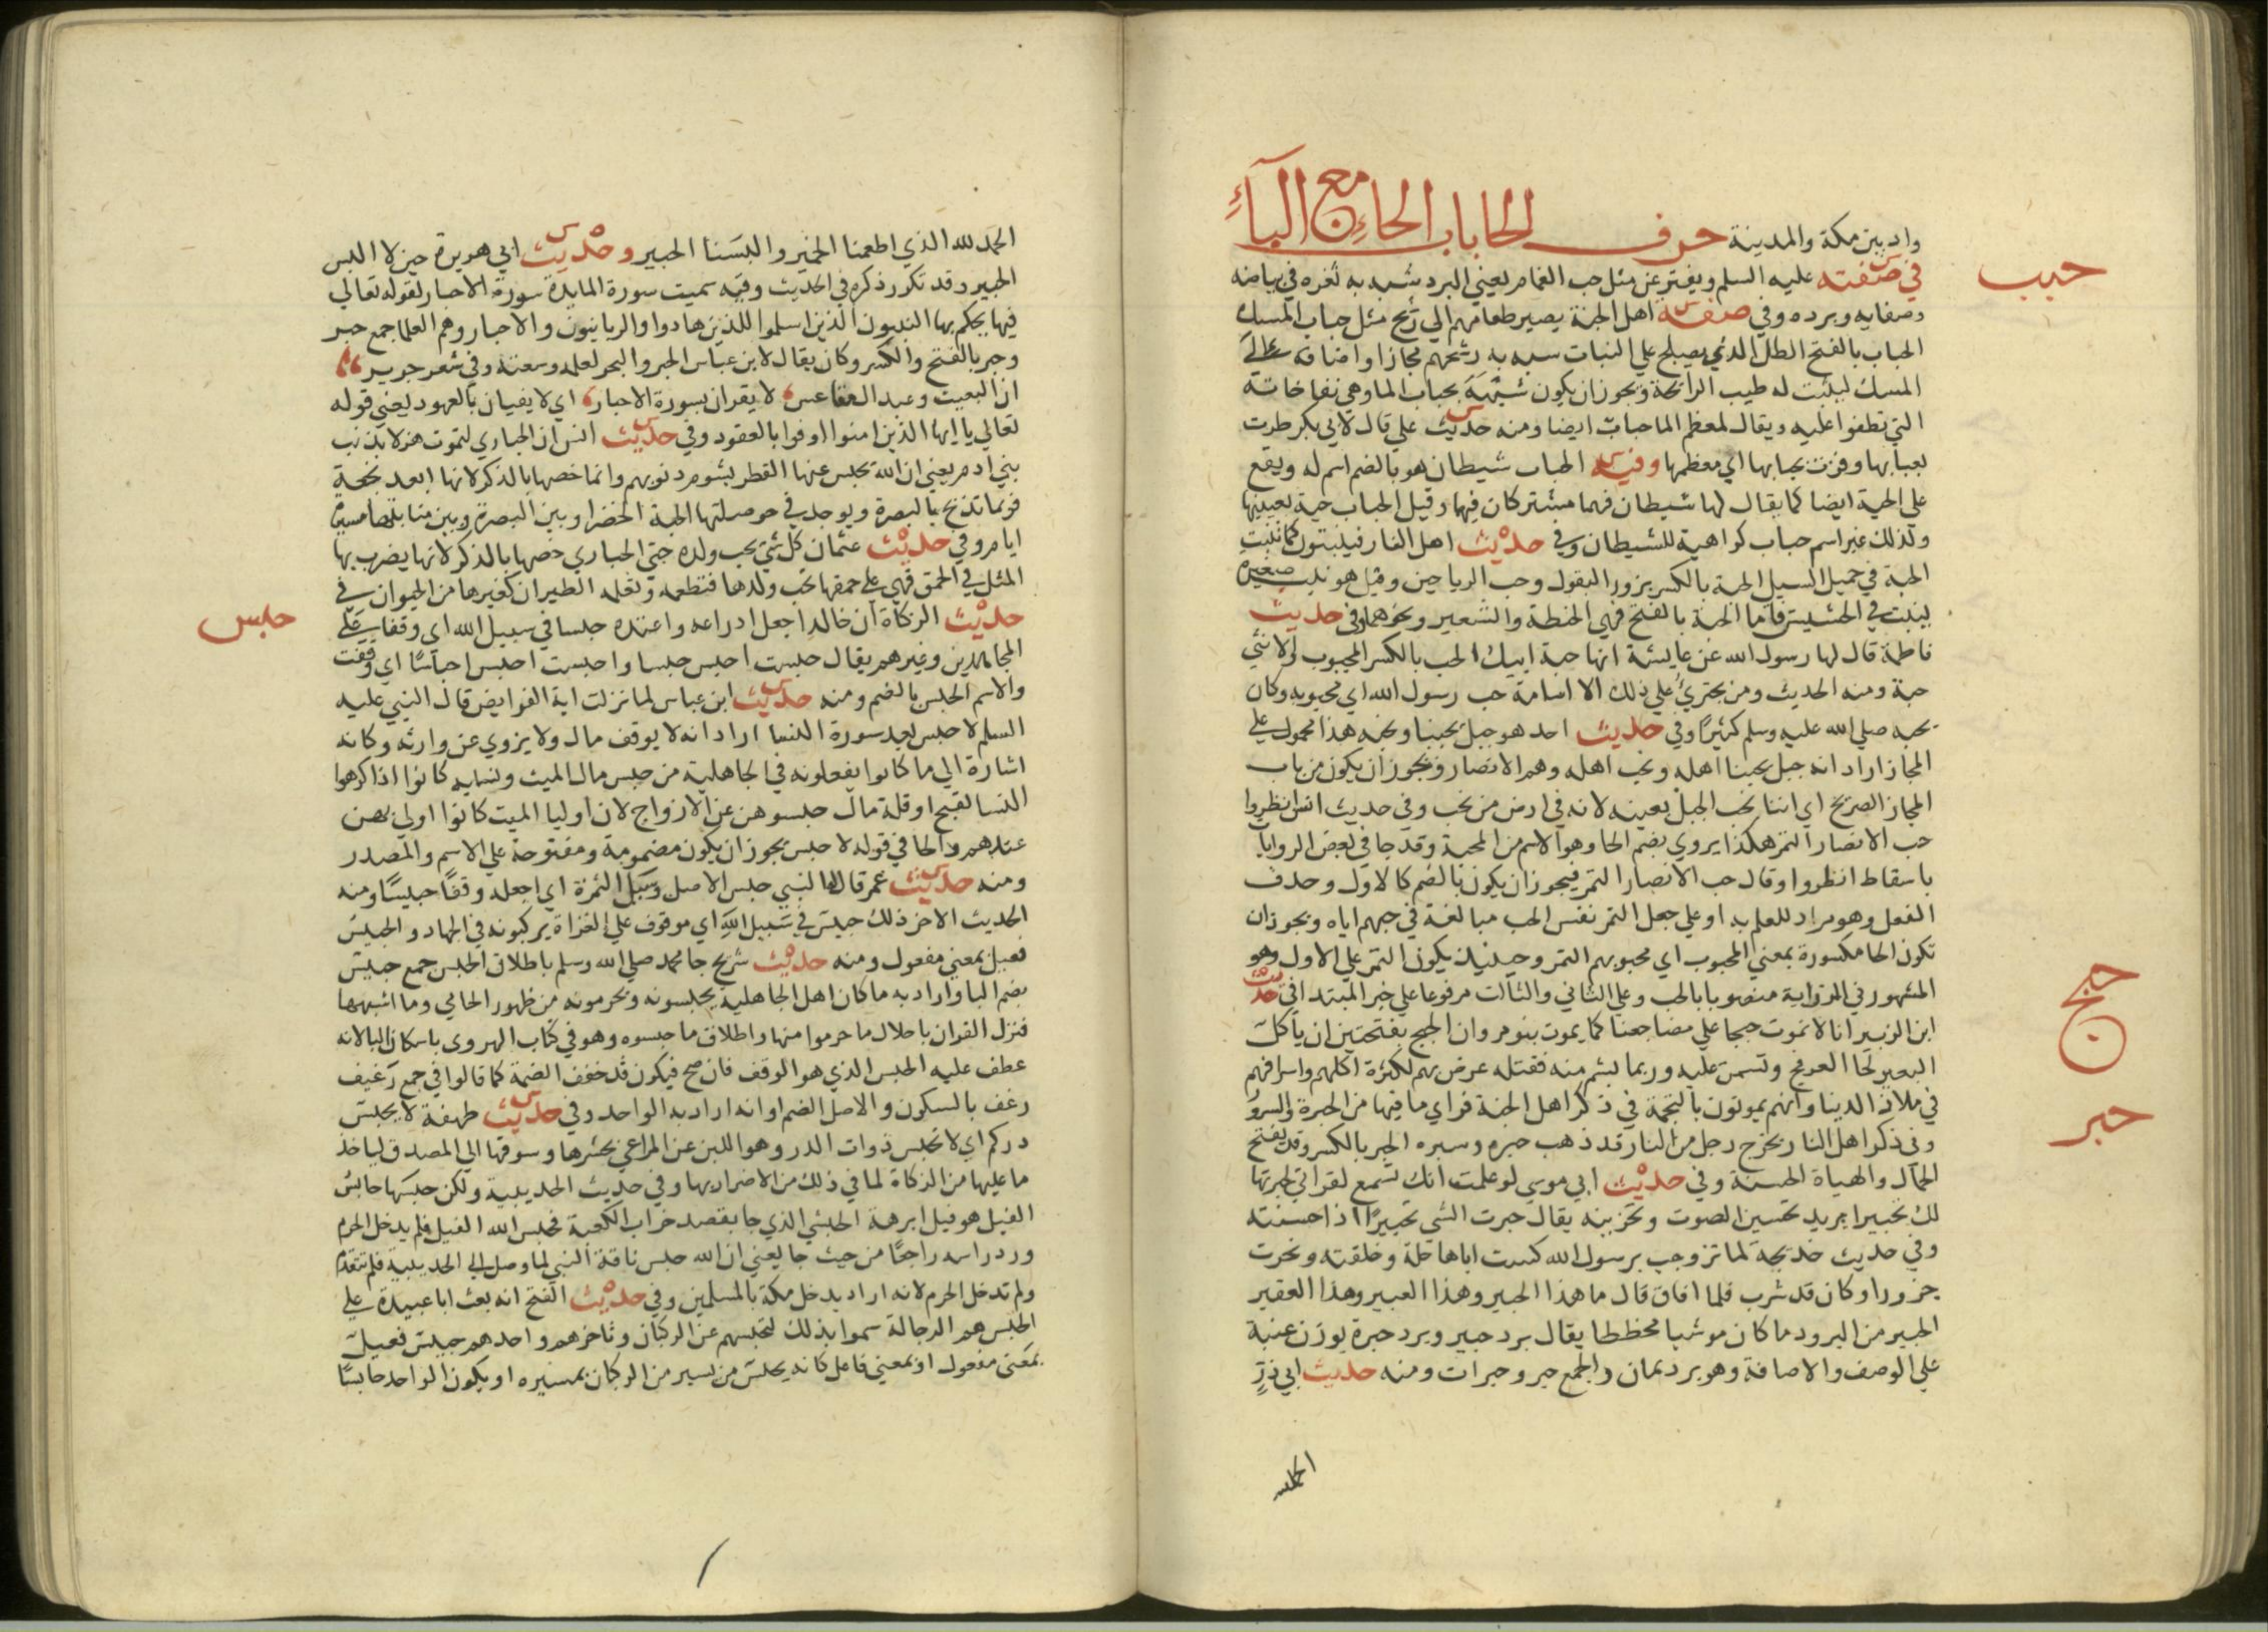 واد بين مكة والمدينة حرف الحا باب الحاء مع الباء
حبب
في صفته عليه السلم ويفتر عن مثل حب الغمام يعني البرد شبه به ثغره في بياضه
وصفايه وبرده وفي صفة اهل الجنة يصير طعامهم الي رشح مثل حباب المسك
الحباب بالفتح الطل الذي يصبح علي النبات شبه به رشحهم مجازا واضافه الي
المسك ليثبت له طيب الرائحة ويجوز ان يكون شبهه بحباب الما وهي نفاخاته
التي تطفوا عليه ويقال لمعظم الما حباب ايضا ومنه حديث علي قال لابي بكر طرت
بعبابها وفزت بحبابها اي معظمها وفيه الحباب شيطان هو بالضم اسم له ويقع
علي الحية ايضا كما يقال لها شيطان فهما مشتركان فيها وقيل الحباب حية بعينها
ولذلك غير اسم حباب كراهية للشيطان وفي حديث اهل النار فينبتون كما تنبت
الحبة في حميل السيل الحبة بالكسر بزور البقول وحب الرياحين وقيل هو نبت صغير
ينبت في الحشيش فاما الحبة بالفتح فهي الحنطة والشعير ونحوهما وفي حديث
فاطمة قال لها رسول الله عن عايشة انها حبة ابيك الحب بالكسر المحبوب والانثي
حبة ومنه الحديث ومن يجتري علي ذلك الا اسامة حب رسول الله اي محبوبه وكان
يحبه صلي الله عليه وسلم كثيرا وفي حديث احد هو جبل يحبنا ونحبه هذا محمول علي
المجاز اراد انه جبل يحبنا اهله ونحب اهله وهم الانصار ويجوز ان يكون من باب
المجاز الصريح اي اننا نحب الجبل بعينه لانه في ارض من نحب وفي حديث انس انظروا
حب الانصار التمر هكذا يروي بضم الحا وهو الاسم من المحبة وقد جا في بعض الروايا
باسقاط انظروا وقال حب الانصار التمر فيجوز ان يكون بالضم كالاول وحذف
الفعل وهو مراد للعلم به او علي جعل التمر نفس الحب مبالغة في حبهم اياه ويجوز ان
تكون الحا مكسورة بمعني المحبوب اي محبوبهم التمر وحينيذ يكون التمر علي الاول وهو
المشهور في الرواية منصوبا بالحب وعلي الثاني والثالث مرفوعا علي خبر المبتدا في حديث
حبج
ابن الزبير انا لا نموت حبجا علي مضاجعنا كما يموت بنو مروان الحبج بفتحتين ان ياكل
البعير لحا العرفج وتسمن عليه وربما بشم منه فقتله عرض بهم لكثرة اكلهم واسرافهم
في ملاذ الدنيا وانهم يموتون بالتخمة في ذكر اهل الجنة فراي ما فيها من الحبرة والسرور
حبر
وفي ذكر اهل النار يخرج رجل من النار قد ذهب حبره وسبره الحبر بالكسر وقد يفتح
الجمال والهياة الحسنة وفي حديث ابي موسي لو علمت انك تسمع لقراتي لحبرتها
لك تحبيرا يريد تحسين الصوت وتحزينه يقال حبرت الشي تحبيرا اذا حسنته
وفي حديث خديجة لما تزوجب برسول الله كست اباها حلة وخلقته ونحرت
جزورا وكان قد شرب فلما افاق قال ما هذا الحبير وهذا العبير وهذا العقير
الحبير من البرود ما كان موشيا مخططا يقال برد حبير وبرد حبرة بوزن عنبة
علي الوصف والاضافة وهو برد يمان والجمع حبر وحبرات ومنه حديث ابي ذر
الحمد لله
الحمد لله الذي اطعمنا الخمير والبسنا الحبير وحديث ابي هويرة حين لا البس
الحبير وقد تكرر ذكره في الحديث وفيه سميت سورة المايدة سورة الاحبار لقوله تعالي
فيها يحكم بها النبيون الذين اسلموا للذين هادوا والربانيون والاحبار وهم العلما جمع حبر
وحبر بالفتح والكسر وكان يقال لابن عباس الحبر والبحر لعلمه وسعته وفي شعر جرير
ان البعيث وعبد ال مقاعس لا يقران بسورة الاحبار اي لا يفيان بالعهود يعني قوله
تعالي يا ايها الذين امنوا اوفوا بالعقود وفي حديث انس ان الحباري لتموت هزلا بذنب
بني ادم يعني ان الله يحبس عنها القطر بشوم ذنوبهم وانما خصها بالذكر لانها ابعد نجعة
فربما تذبح بالبصرة ويوجد في حوصلتها الحبة الخضرا وبين البصرة وبين منابتها مسيرة
ايام وفي حديث عثمان كل شي يحب ولده حتي الحباري خصها بالذكر لانها يضرب بها
المثل في الحمق فهي علي حمقها تحب ولدها فتطعمه وتعلمه الطيران كغيرها من الحيوان في
حبس
حديث الزكاة ان خالدا جعل ادراعه واعتده حبسا في سبيل الله اي وقفا علي
المجاهدين وغيرهم يقال حبست احبس حبسا واحبست احبس احباسا اي وقفت
والاسم الحبس بالضم ومنه حديث ابن عباس لما نزلت اية الفرايض قال النبي عليه
السلم لا حبس بعد سورة النسا اراد انه لا يوقف مال ولا يزوي عن وارثه وكانه
اشارة الي ما كانوا يفعلونه في الجاهلية من حبس مال الميت ونسايه كانوا اذا كرهوا
النسا لقبح او قلة مال حبسوهن عن الازواج لان اوليا الميت كانوا اولي بهن
عندهم والحا في قوله لا حبس يجوز ان يكون مضمومة ومفتوحة علي الاسم والمصدر
ومنه حديث عمر قال له النبي حبس الاصل وسبل الثمرة اي اجعله وقفا حبيسا ومنه
الحديث الاخر ذلك حبيس في سبيل الله اي موقوف علي الغزاة يركبونه في الجهاد والحبيس
فعيل بمعني مفعول ومنه حديث شريح جا محمد صلي الله وسلم باطلاق الحبس جمع حبيس
بضم البا واراد به ما كان اهل الجاهلية يحبسونه ويحرمونه من ظهور الحامي وما اشبهها
فنزل القران باحلال ما حرموا منها واطلاق ما حبسوه وهو في كتاب الهروي باسكان البا لانه
عطف عليه الحبس الذي هو الوقف فان صح فيكون قد خفف الضمة كما قالوا في جمع رغيف
رغف بالسكون والاصل الضم او انه اراد به الواحد وفي حديث طهفة لا يحبس
دركم اي لا تحبس ذوات الدر وهو اللبن عن المراعي بحشرها وسوقها الي المصدق لياخذ
ما عليها من الزكاة لما في ذلك من الاضرار بها وفي حديث الحديبية ولكن حبسها حابس
الفيل هو فيل ابرهة الحبشي الذي جا يقصد خراب الكعبة فحبس الله الفيل فلم يدخل الحرم
ورد راسه راجعا من حيث جا يعني ان الله حبس ناقة النبي لما وصل الي الحديبية فلم تتقدم
ولم تدخل الحرم لانه اراد يدخل مكة بالمسلمين وفي حديث الفتح انه بعث ابا عبيدة علي
الحبس هم الرجالة سموا بذلك لتحبسهم عن الركبان وتاخرهم واحدهم حبيس فعيل
بمعني مفعول او بمعني فاعل كانه يحبس من يسير من الركبان بمسيره او يكون الواحد حابسا